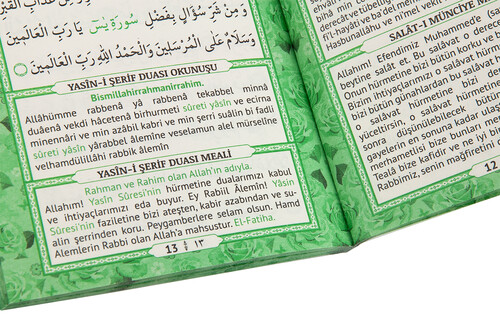 وَمِنْ شَرِّ سُؤَالٍ بِفَضْلِ سُورَةِ يٰسٓ يَا رَبَّ الْعَالَمِينَ
وَسَلَامٌ عَلَى الْمُرْسَلِينَ وَالْحَمْدُ لِلّٰهِ رَبِّ الْعَالَمِينَ
YASÎN-İ ŞERİF DUASI OKUNUŞU
Bismillahirrahmanirrahim.
Allâhümme rabbenâ yâ rabbenâ tekabbel minnâ
duâenâ vekdi hâcetenâ birhurmeti sûreti yâsîn ve ecirna
minennâri ve min azâbil kabri ve min şerri suâlin bi fadli
sûreti yâsîn yârabbel âlemîne veselamun alel mürselîne
velhamdülillâhi rabbik âlemîn
YASÎN-İ ŞERİF DUASI MEALİ
Rahman ve Rahim olan Allah'ın adıyla.
Allahım! Yasîn Sûresi'nin hürmetine dualarımızı kabul
ve ihtiyaçlarımızı eda buyur. Ey Rabiil Âlemîn! Yâsîn
Sûresi'nin faziletine bizi ateşten, kabir azabından ve su-
alin şerrinden koru. Peygamberlere selam olsun. Hamd
Alemlerin Rabbi olan Allah'a mahsustur. El-Fatiha.
13 ١٣
derecât ve tübelliğ
fi'l-hayâti ve ba'del me
Hasbunallâhu ve ni'mel vek
SALÂT-I MÜNCİYE
Allahım! Efendimiz Muhammed'e (s
beytine salât et. Bu salâvat o derec
Onun hürmetine bizi bütün korku ve be
Bizim ihtiyaçlarımızı o salâvat hürme
bizi bütün günahlardan bu salâvat h
o salâvat hürmetine, bizi
yüceltirsin, o salâvat hürmet
sonra düşünülebilecek bütün
gayelerin en sonuna kadar ulaş
merhametlisi bize bunları mer
Teâlâ bize kafidir ve ne iyi
Rabbimiz, senin mağfiretini
12